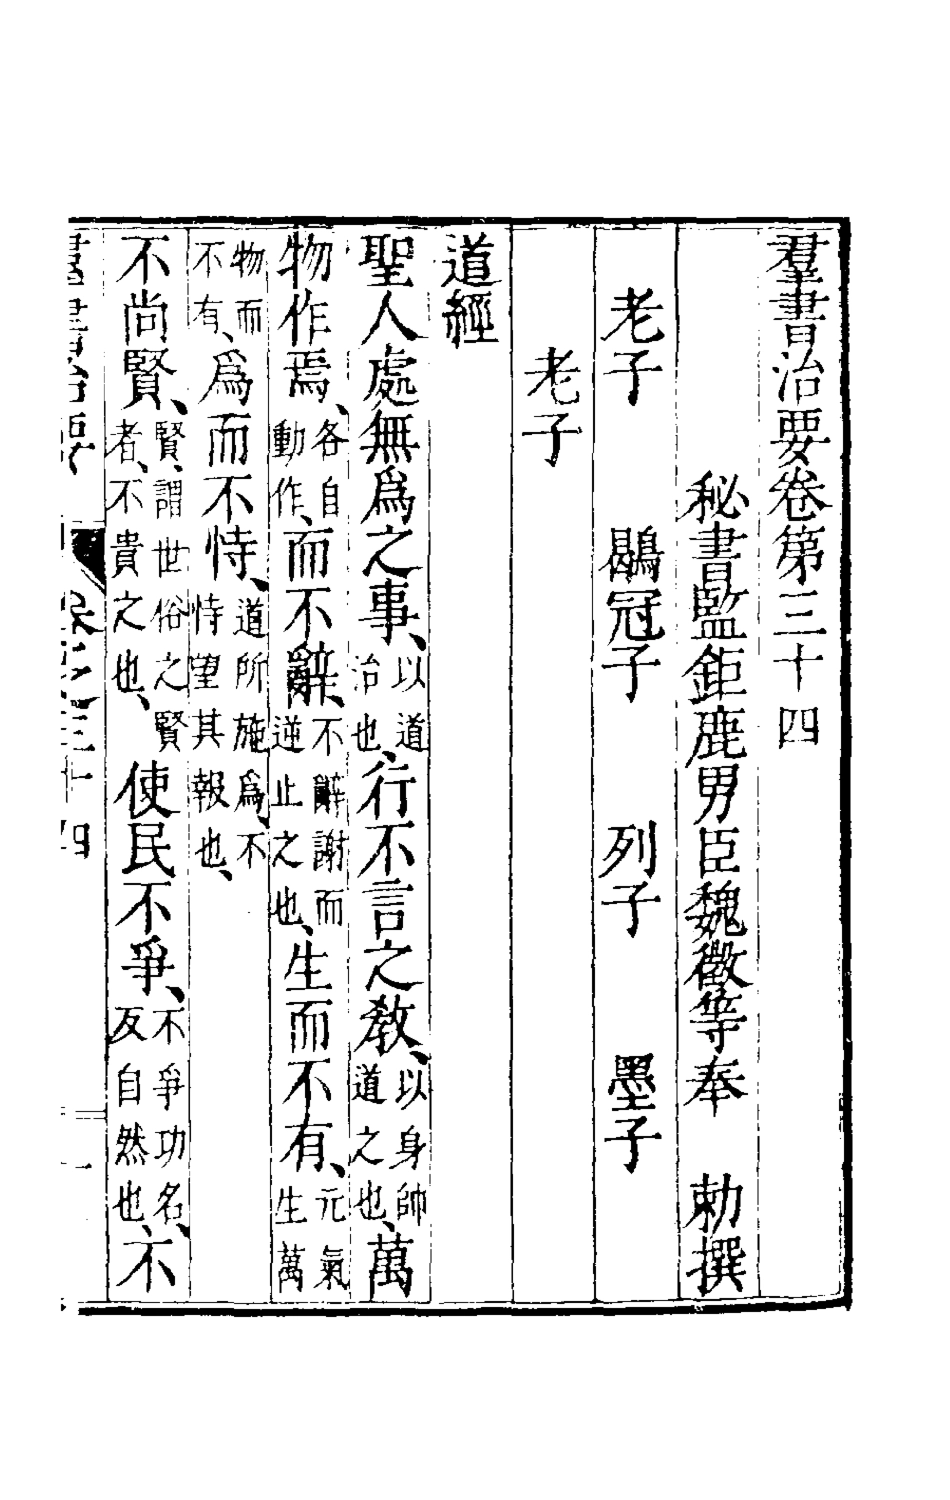 羣書治要卷第三十四
秘書監鉅鹿男臣魏徵等奉　勅撰
老子　鶡冠子　列子　墨子
老子
道經
聖人處無爲之事、以道治也、行不言之教、以身帥道之也、萬
物作焉、各自動作、而不辭、不辭謝而逆止之也、生而不有、元氣生萬
物而不有、爲而不恃、道所施爲、不恃望其報也、
不尚賢、賢、謂世俗之賢者、不貴之也、使民不爭、不爭功名、反自然也、不
羣書治要　卷之三十四　一